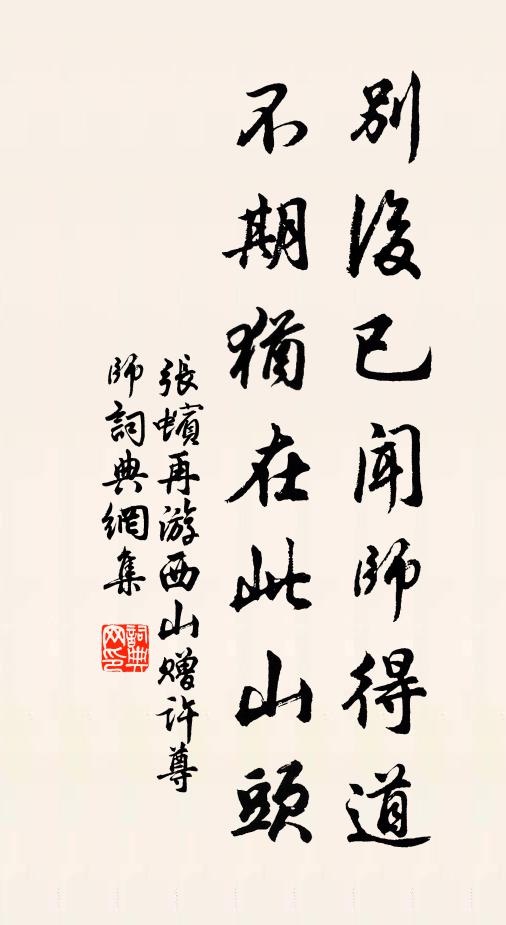 別後已闻師得道
不期猶在此山頭
張蠙再游西山赠许尊
師詞典網集
詞典
网印